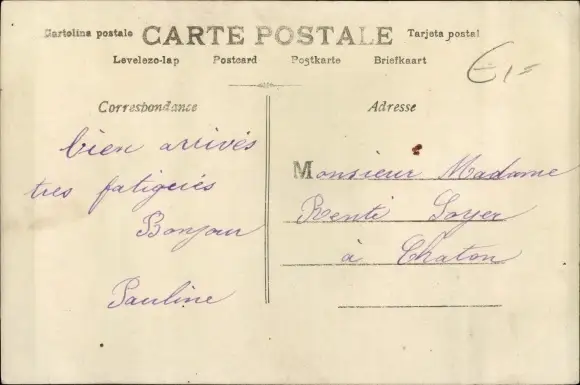 Cartolina postale CARTE POSTALE Tarjeta postal
Levelezo-lap Postcard Postkarte Briefkaart
€1=
Correspondance
bien arrivés
tres fatigués
Bonjour
Pauline
Adresse
Monsieur Madame
Renti Soyer
à Chaton